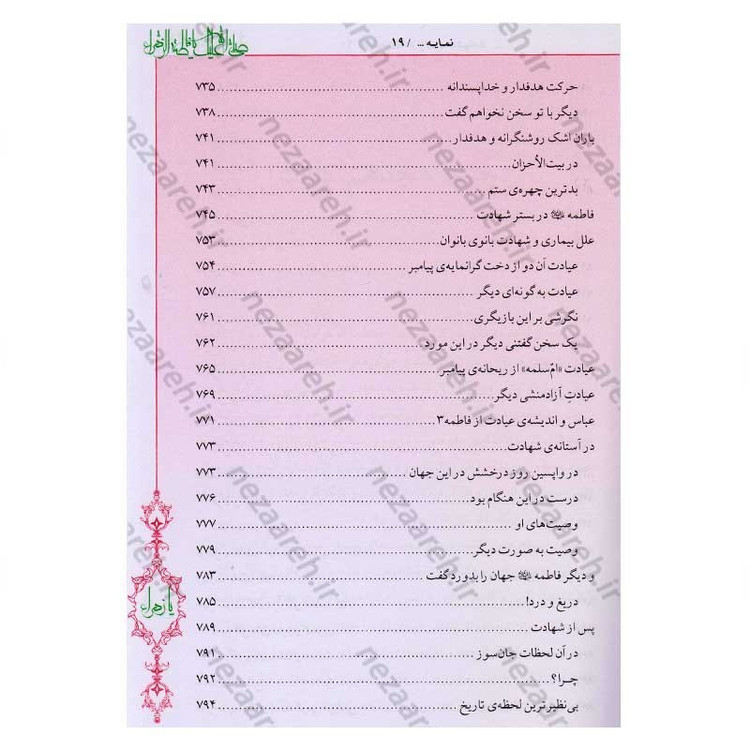 نمایه ... / ۱۹
حرکت هدفدار و خداپسندانه ........ ۷۳۵
دیگر با تو سخن نخواهم گفت ........ ۷۳۸
باران اشک روشنگرانه و هدفدار ........ ۷۴۱
در بیت‌الأحزان ........ ۷۴۱
بدترین چهره‌ی ستم ........ ۷۴۳
فاطمه در بستر شهادت ........ ۷۴۵
علل بیماری و شهادت بانوی بانوان ........ ۷۵۳
عیادت آن دو از دخت گرانمایه‌ی پیامبر ........ ۷۵۴
عیادت به گونه‌ای دیگر ........ ۷۵۷
نگرشی بر این بازیگری ........ ۷۶۱
یک سخن گفتنی دیگر در این مورد ........ ۷۶۲
عیادت «امّ‌سلمه» از ریحانه‌ی پیامبر ........ ۷۶۵
عیادتِ آزادمنشی دیگر ........ ۷۶۹
عباس و اندیشه‌ی عیادت از فاطمه۳ ........ ۷۷۱
در آستانه‌ی شهادت ........ ۷۷۳
در واپسین روز درخشش در این جهان ........ ۷۷۳
درست در این هنگام بود ........ ۷۷۶
وصیت‌های او ........ ۷۷۷
وصیت به صورت دیگر ........ ۷۷۹
و دیگر فاطمه جهان را بدورد گفت ........ ۷۸۳
دریغ و درد! ........ ۷۸۵
پس از شهادت ........ ۷۸۹
در آن لحظات جان‌سوز ........ ۷۹۱
چرا؟ ........ ۷۹۲
بی‌نظیرترین لحظه‌ی تاریخ ........ ۷۹۴
یا زهراء
nezaareh.ir